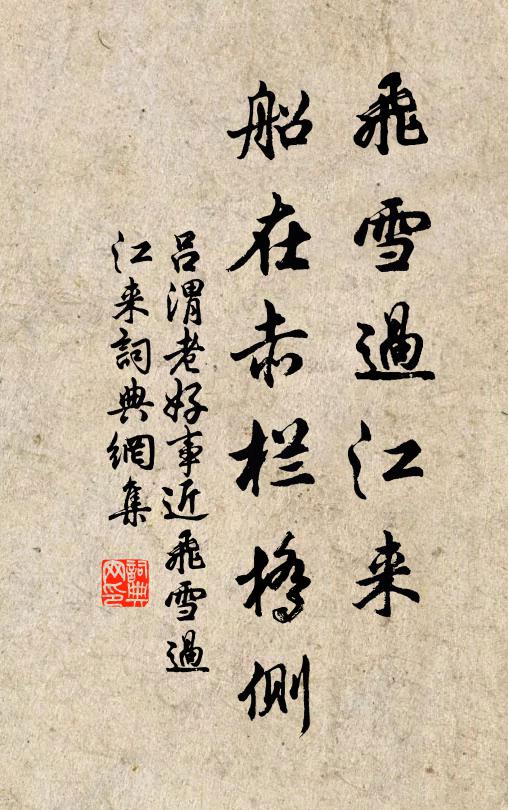 飛雪過江来
船在赤栏橋側
吕渭老好事近飛雪過
江来詞典網集
詞典网印